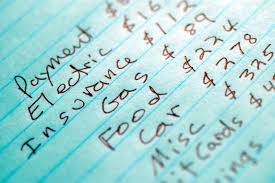 Payment $
Electric $112
Insurance $ 89
Gas $224
Food $278
Car $325
Misc $
Cards $